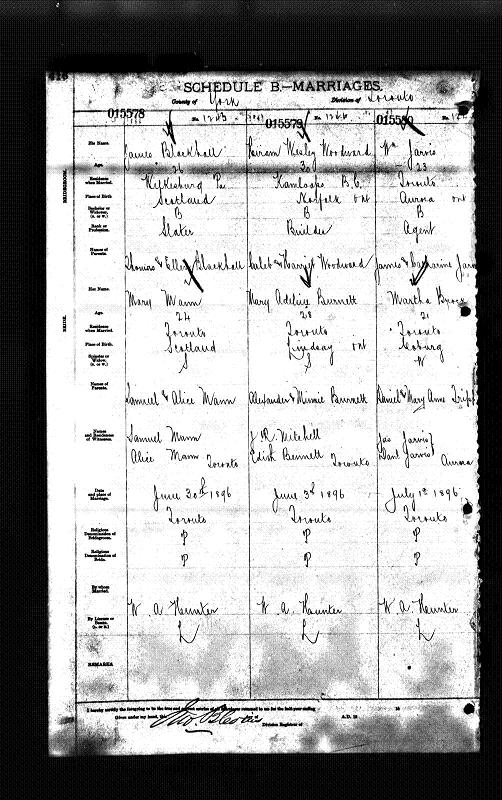 SCHEDULE B.—MARRIAGES.
County of York Division of Toronto
015578 015579 015580
His Name. James Blackhall Hiram Wesley Woodward Wm Jarvis
Age. 26 30 23
Residence when Married. Wilkesburg Pa Kamloops B.C. Toronto
Place of Birth Scotland Norfolk Ont Aurora Ont
Bachelor or Widower. (B. or W.) B B B
Rank or Profession. Slater Builder Agent
Names of Parents. Thomas & Ellen Blackhall Caleb & Harriet Woodward James & Catharine
BRIDEGROOM.
Her Name. Mary Mann Mary Adelice Burnett Martha
Age. 24 28 21
Residence when Married. Toronto Toronto Toronto
Place of Birth Scotland Lindsay Ont Coburg
Spinster or Widow. (S. or W.) S S W
BRIDE.
Names of Parents. Samuel & Alice Mann Alexander & Minnie Burnett Daniel & Mary Anne
Names and Residences of Witnesses. Samuel Mann J. R. Mitchell Jas Jarvis
Alice Mann Toronto Edith Bennett Toronto Jarvis Aurora
Date and place of Marriage. June 30th 1896 June 3rd 1896 July 1st 1896
Toronto Toronto Toronto
Religious Denomination of Bridegroom. P P P
Religious Denomination of Bride. P P P
By whom Married. W. A. Hunter W. A. Hunter W. A. Hunter
By License or Banns. (L. or B.) L L L
REMARKS
I hereby certify the foregoing to be the true and correct of returned to me for the half-year ending
Given under my hand, this A.D. 18
Division Registrar of